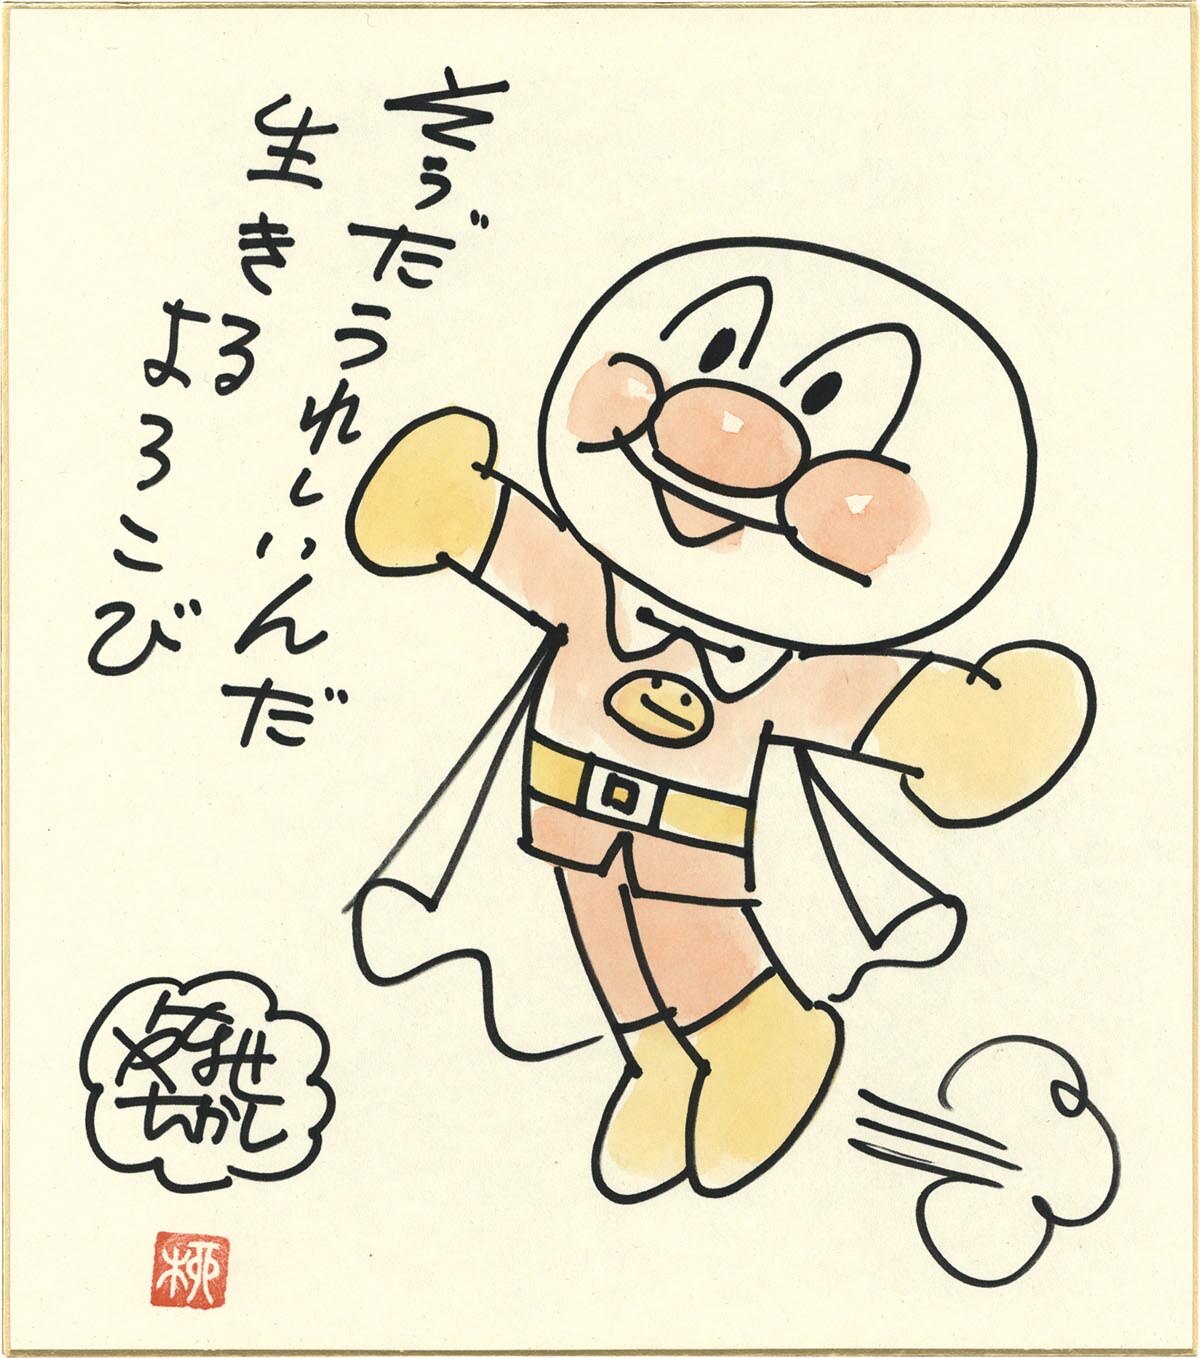 そうだうれしいんだ
生きる
よろこび
やなせ
たかし
柳